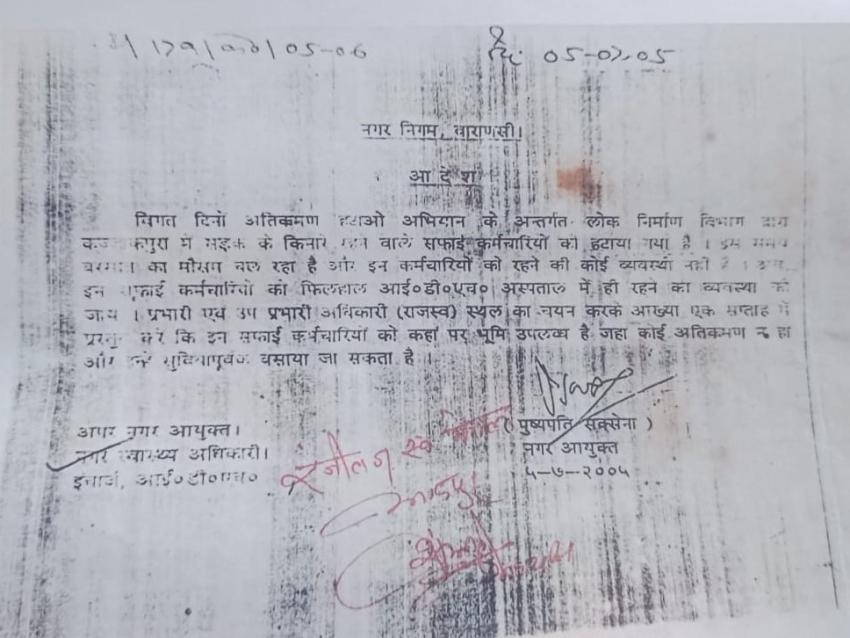 05-06 दि: 05-07-05
नगर निगम, वाराणसी।
आदेश
विगत दिनों अतिकमण हटाओ अभियान के अन्तर्गत लोक निर्माण विभाग द्वारा
में सड़क के किनारे रहने वाले सफाई कर्मचारियों को हटाया गया है । इस समय
बरसात का मौसम चल रहा है और इन कर्मचारियों को रहने की कोई व्यवस्था नहीं है । अतः
इन सफाई कर्मचारियों को फिलहाल आई०डी०एच० अस्पताल में ही रहने का व्यवस्था की
जाय । प्रभारी एवं उप प्रभारी अधिकारी (राजस्व) स्थल का चयन करके आख्या एक सप्ताह में
प्रस्तुत करें कि इन सफाई कर्मचारियों को कहां पर भूमि उपलब्ध है जहा कोई अतिकमण न हो
और इन्हें सुविधापूर्वक बसाया जा सकता है ।
( पुष्पपति सक्सेना )
अपर नगर आयुक्त। नगर आयुक्त
नगर स्वास्थ्य अधिकारी। ५-७-२००५
इंचार्ज, आई०डी०एच०